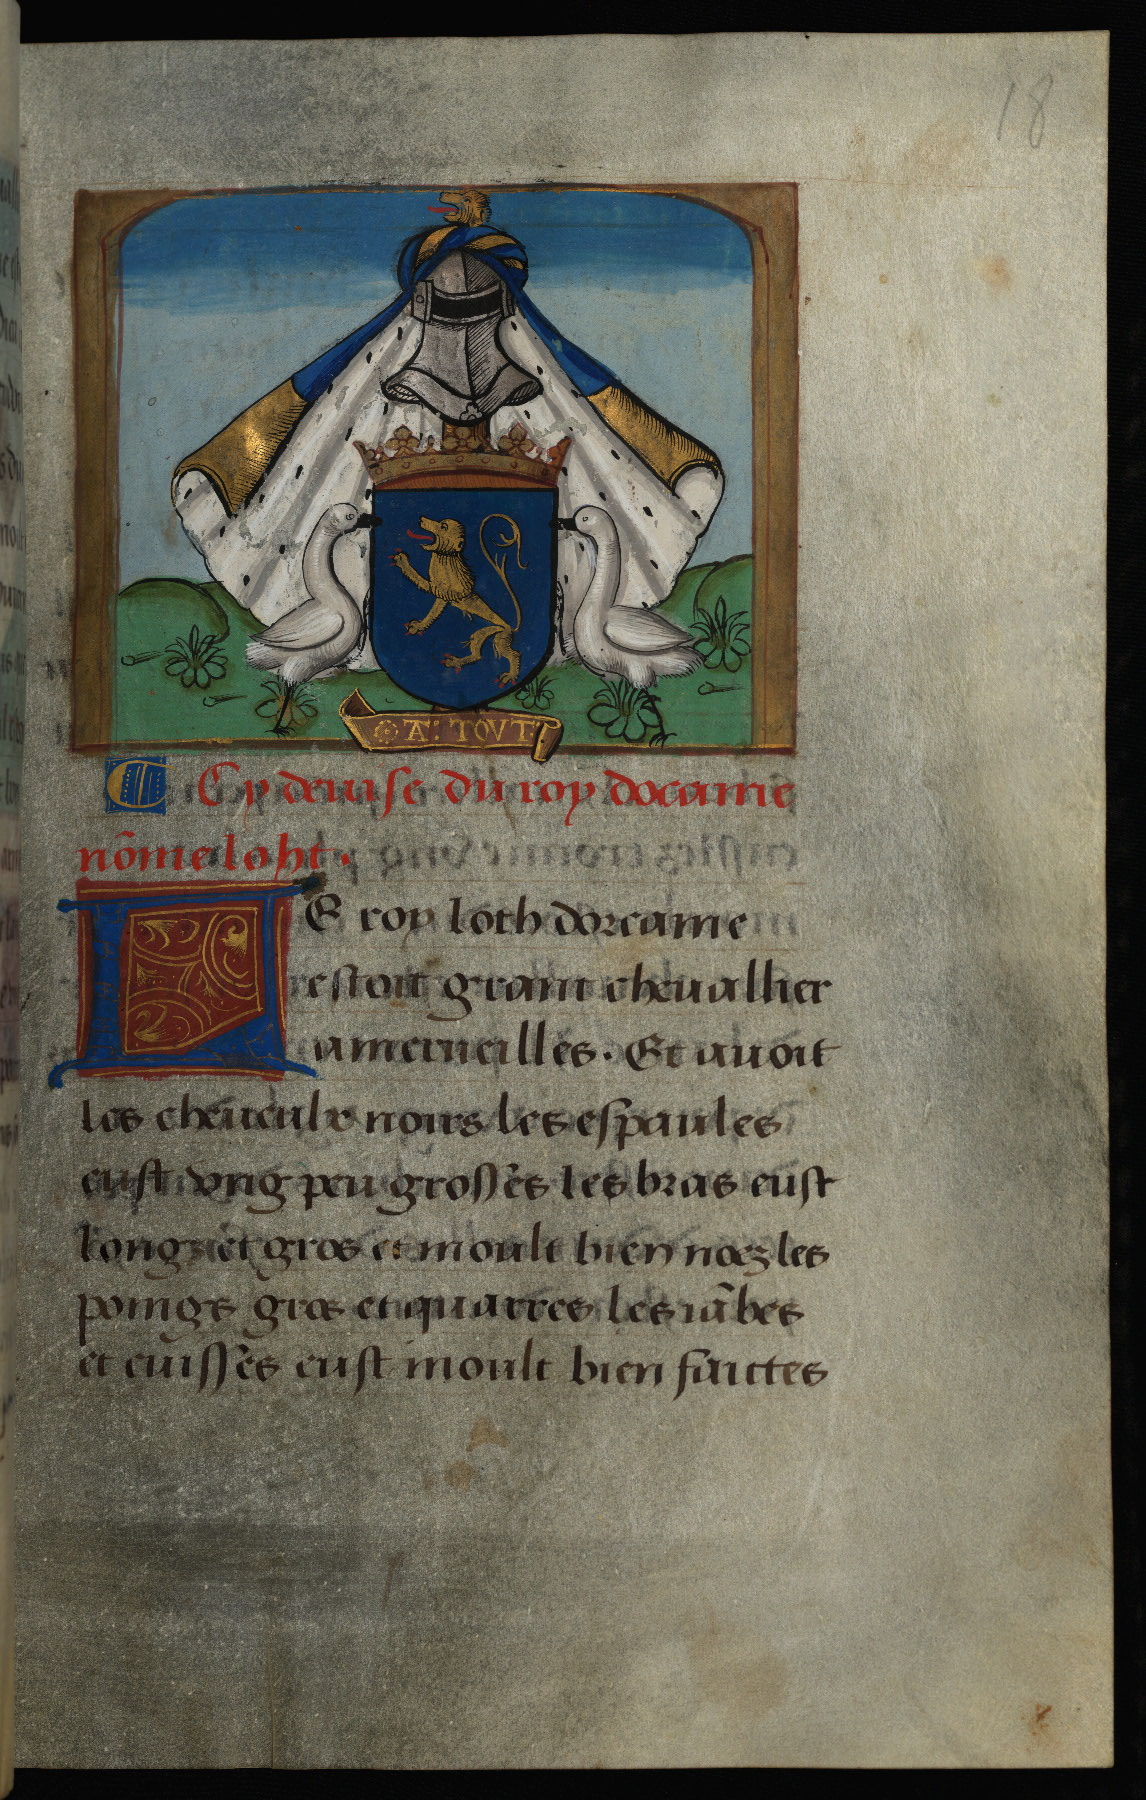 18
A: TOVT
Cy deuise du roy docanie
nõme loht.
LE roy loth dorcanie
estoit grant cheuallier
a merueilles. Et auoit
les cheueulx noirs les espaules
eust vng peu grosses les bras eust
longz et gros et moult bien noez les
poingz gros et quarres les iãbes
et cuisses eust moult bien faictes